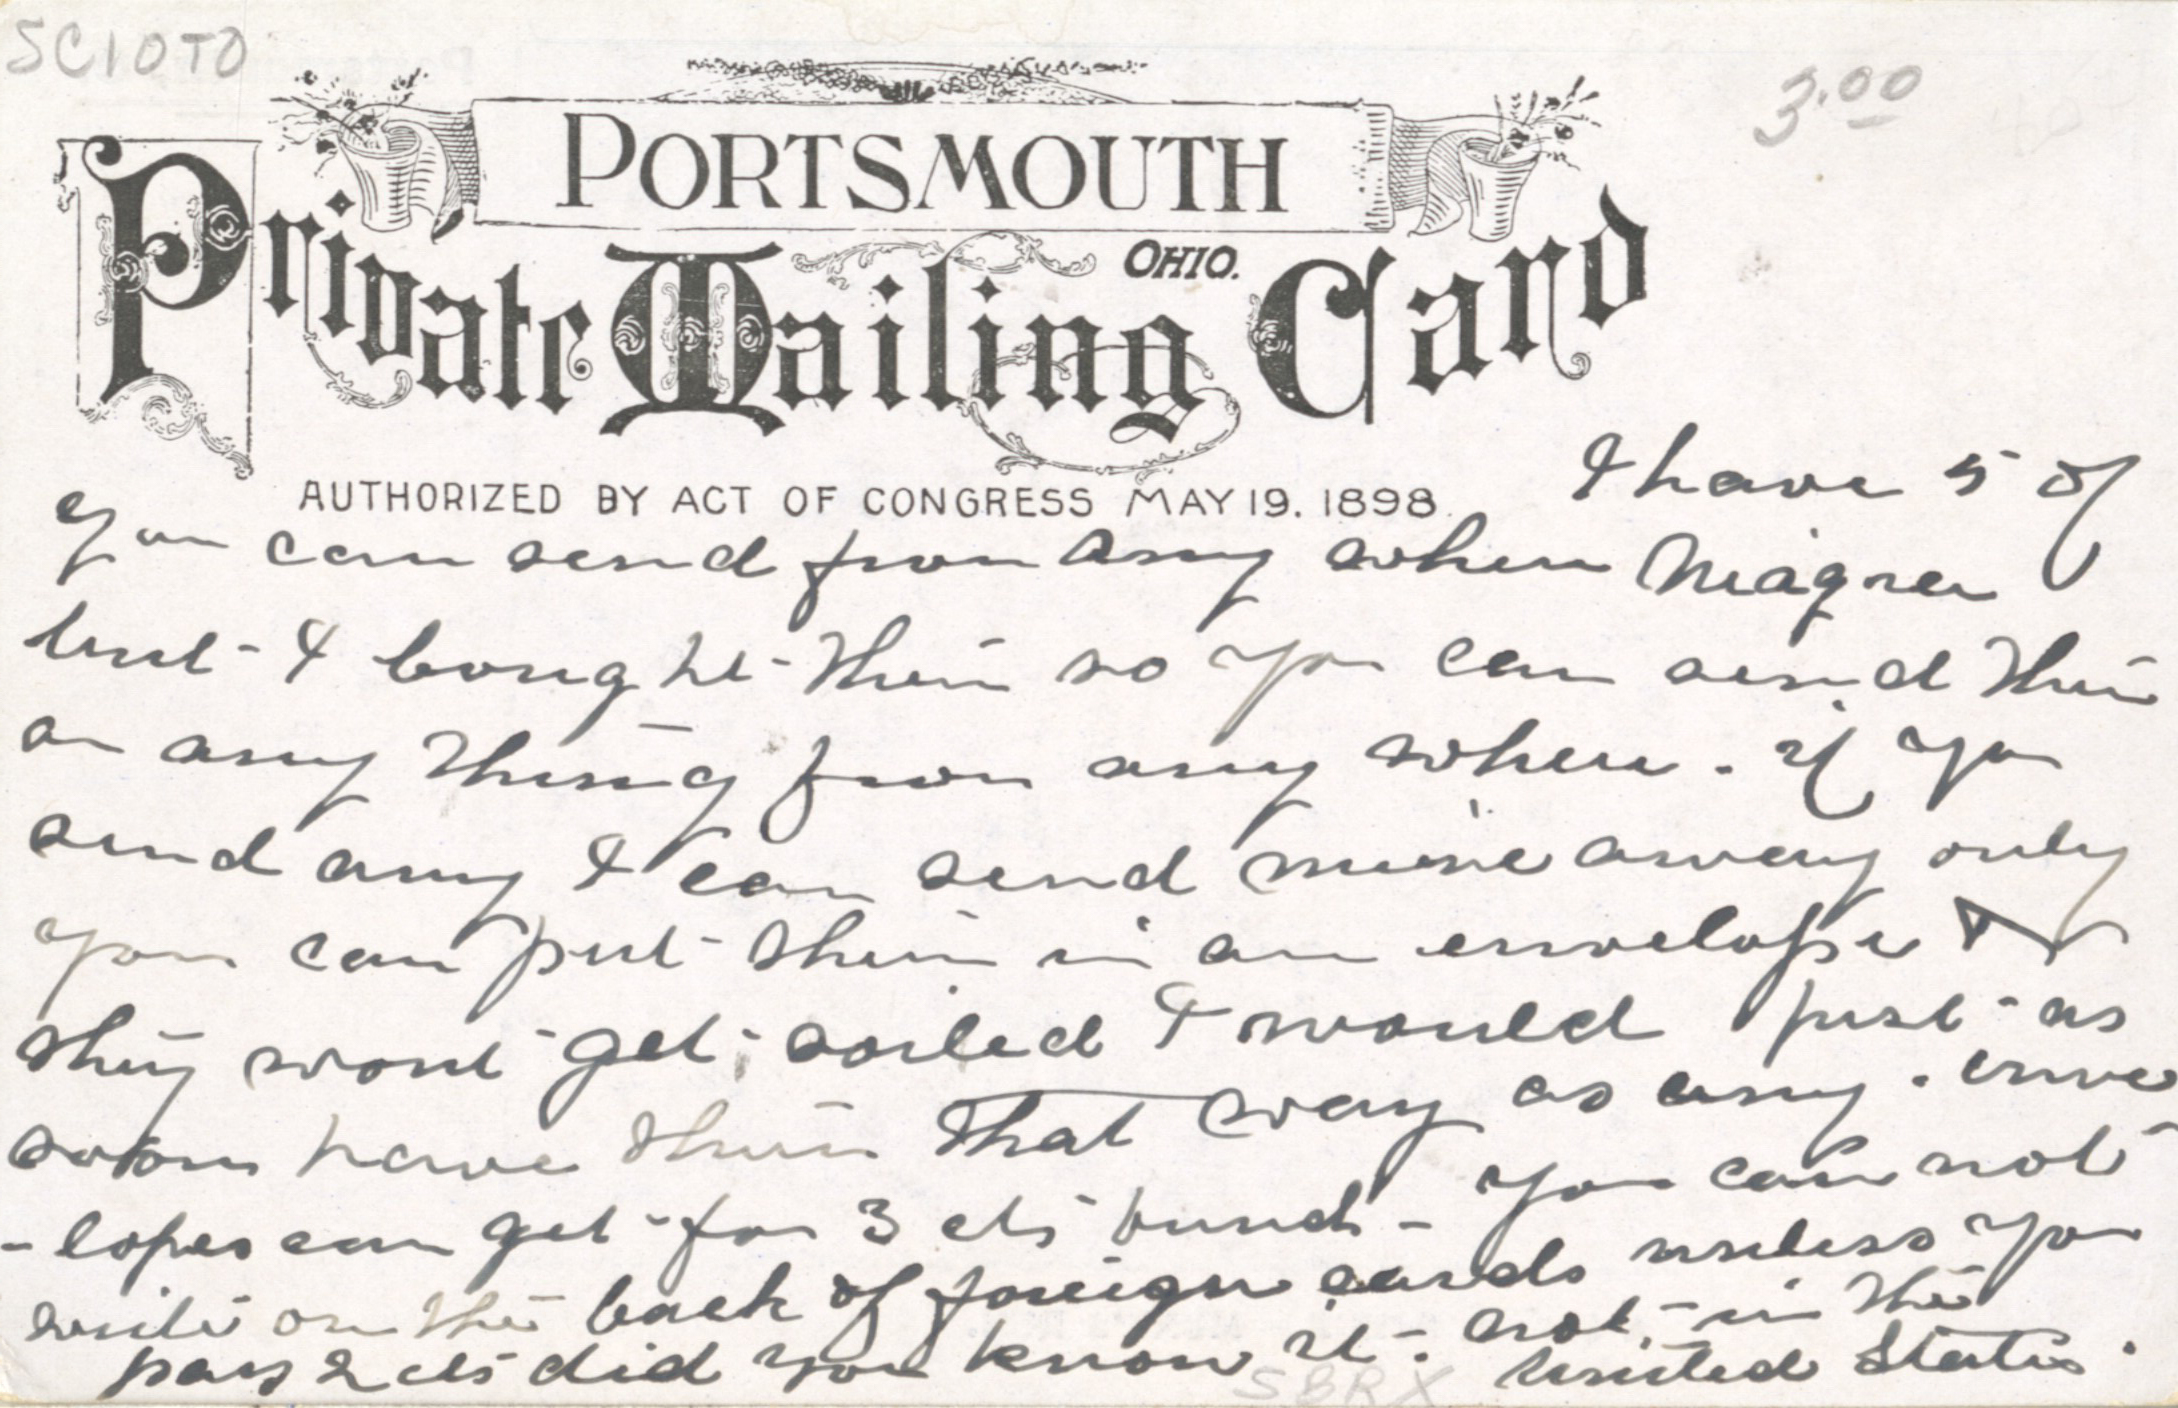 SCIOTO
3.00
PORTSMOUTH
OHIO.
Private Mailing Card
AUTHORIZED BY ACT OF CONGRESS MAY 19. 1898.
I have 5 of
you can send from any where Niagrea
but I bought them so you can send them
or any thing from any where. if you
send any I can send mine away only
you can put them in an envelope &
they wont get soiled I would just as
soon have them that way as any. enve
-lopes can get for 3 cts bunch - you can not
write on the back of foreign cards unless you
pay 2 cts did you know it. not in the
United States.
SBRX